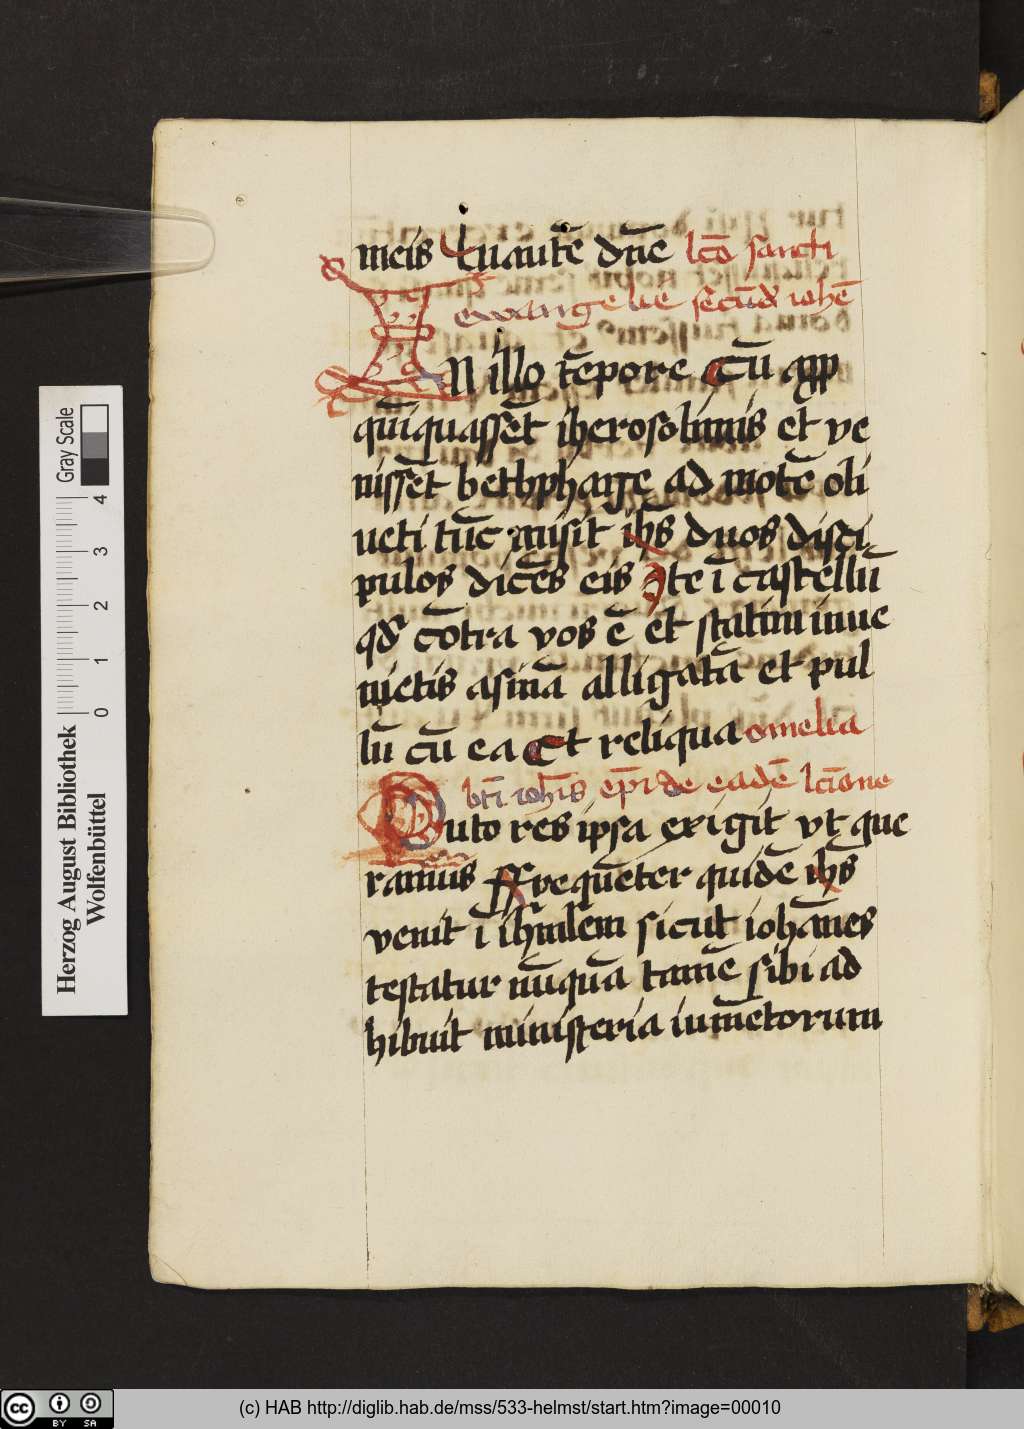 meis Tu autē dn̄e lc̄o sancti
ewangelıı̄ secūdū iohē
IN illo tēpore Cū
qui̅quassēt iherosolimis et ve
nissēt bethphage ad mōtē oli
ueti tūc misit ih̄s duos disci
pulos dicēs eis Ite ī castellū
qd̄ cōtra vos ē et statim inue
nietis asinā alligatā et pul
lū cū ea Et reliqua omelia
bt̄i ioh̄is ep̄i de eadē lc̄ione
Puto res ipsa exigit vt que
ramus Frequēter quidē ih̄s
venit ī ih̄rl̄em sicut iohānes
testatur nūquā tamē sibi ad
hibuit ministeria iumētorum
Gray Scale
0 1 2 3 4
Herzog August Bibliothek
Wolfenbüttel
cc BY SA
(c) HAB http://diglib.hab.de/mss/533-helmst/start.htm?image=00010